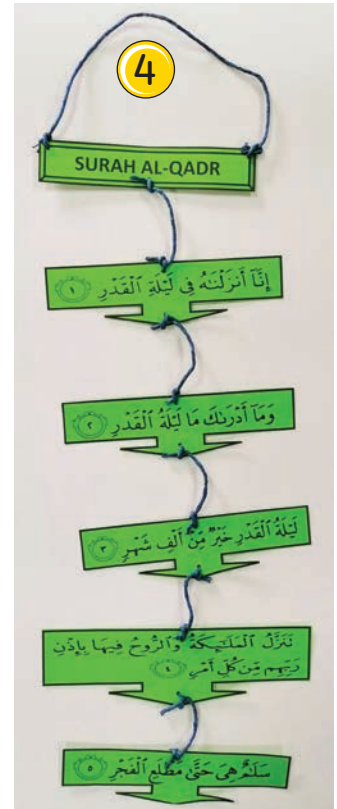 4
SURAH AL-QADR
إِنَّآ أَنزَلْنَٰهُ فِى لَيْلَةِ ٱلْقَدْرِ ١
وَمَآ أَدْرَىٰكَ مَا لَيْلَةُ ٱلْقَدْرِ ٢
لَيْلَةُ ٱلْقَدْرِ خَيْرٌ مِّنْ أَلْفِ شَهْرٍ ٣
تَنَزَّلُ ٱلْمَلَٰٓئِكَةُ وَٱلرُّوحُ فِيهَا بِإِذْنِ
رَبِّهِم مِّن كُلِّ أَمْرٍ ٤
سَلَٰمٌ هِىَ حَتَّىٰ مَطْلَعِ ٱلْفَجْرِ ٥